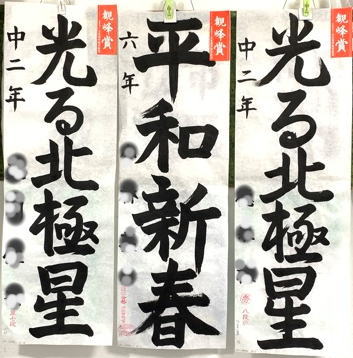 観峰賞
光る北極星
中二年
観峰賞
平和新春
六年
観峰賞
光る北極星
中二年
八段